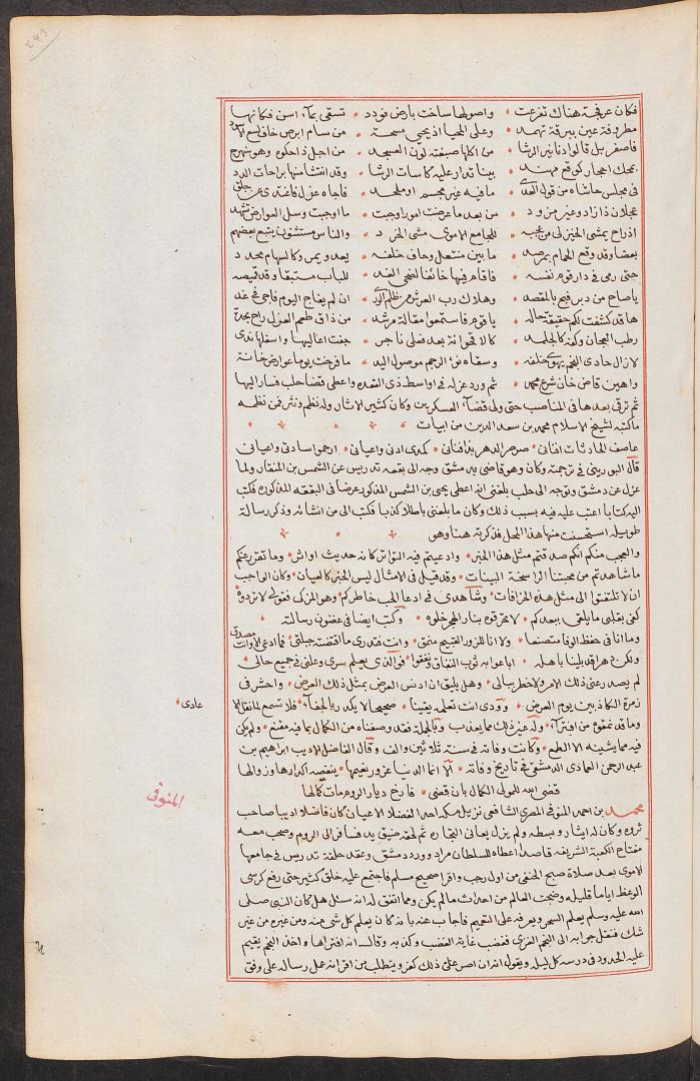 ٤٩٣
فكان عرفجة هناك تفرعت • واصولها ساخت بارض فودد • تسقى بماء اسن فكانها
مطروفة عين ببرقة تهمد • وعلى المحيا اذ يحيى مسحة • من سام ابرص خاف لسع الاسود
فاصفر بل قالوا دنانير الرشا • من اكلها صبغته لون العسجد • من اجل ذا حكوه وهو بنهرج
بمحك احجار كوقع مهند • بينا تدار عليه كاسات الرشا • وقد انتشا منها براحات الدد
في مجلس حاشاه من قول • ما فيه غير مجسم او ملحد • فاجاه عزل فاغتدى عن جلق
عجلان ذا زاد وغير مزود • من بعد ما عرضت امور اوجبت • ما اوجبت وسل العوارض تشهد
اذ راح يمشي الخيزلى من عجبه • للجامع الاموي مشى الخرد • والناس مستشفون يتبع بعضهم
بعضا وقد وقع الحمام بمرصد • ما بين منتعل وحاف خلفه • يعدو يمر وكالسهام محدد
حتى رمى في دار قوم نفسه • فاقام فيها خائفا لضحى الغد • للباب مستبقا وقد قميصه
يا صاح من دبر فتيح بالمقصد • وهلاك رب العرش من ظلم • ان لم يفاج اليوم فاجى في غد
ها قد كشفت لكم حقيقة حاله • يا قوم فاستمعوا مقالة مرشد • من ذاق طعم العزل راح بحدة
رطب العجان وكفه كالجلمد • كالاقحوانة بعد فعلي ناجر • جفت اعاليها واسفلها ندى
لا زال حادي النجم يهوي خلفه • وسقاه نوء الرجم موصول اليد • ما فرخت يوما عوارض خانة
واهين قاض خان شرع محمد • ثم ورد عزله في اواسط ذي القعده واعطى قضا حلب فسار اليها
ثم ترقى بعدها في المناصب حتى ولي قضاء العسكرين وكان كثير الاثار وله نظم ونثر فمن نظمه
ما كتبه لشيخ الاسلام محمد بن سعد الدين من ابيات
عاصف الحادثات افنان • صرصر الدهر بذ افناني • كمدي ادنى واعيانى • ارحموا سادتي واعياني
قال البوريني في ترجمته وكان وهو قاضي بدمشق وجه الى بقعه تدريس عن الشمس بن المنقار ولما
عزل عن دمشق وتوجه الى حلب بلغني انه اعطى يحيى بن الشمس المذكور عرضا في البقعه المذكوره فكتب
اليه كتابا اعتب عليه فيه بسبب ذلك وكان ما بلغني باطلا كذبا فكتب الى من انشائه وذكر رسالة
طويله استحسنت منها هذا المحل فذكرته هنا وهو
والعجب منكم انكم صدقتم مثل هذا الخبر • وادعيتم فيه التواتر كانه حديث او اثر • وما تقرر عنكم
ما شاهدتم من محبتنا الراسخة البينات • وقد قيل في الامثال ليس الخبر كالعيان • وكان الواجب
ان لا تلتفتوا الى مثل هذه الخرافات • وشاهدي في ادعا الحب خاطركم • وهو المزكي فقولي لا تردوه
كفى بقلبي ما يلقى ببعدكم • لا تحرقوه بنار الهجر خلوه • وكتب ايضا في غضون رسالته
وما انا في حفظ الوفا متصنعا • ولا انا للزور القبيح منمق • وانت فتدري ما اقتضته جبلتي • فما ادعي الا وانت مصدق
ولكن دهرا قد بلينا باهله • اباعوا به ثوب النفاق ينفقوا • فوالذي يعلم سري وعلني في جميع حالي •
لم يصدر عني ذلك الامر ولا خطر ببالي • وهل يليق ان ادنس العرض بمثل ذلك العرض • واحشر في
زمرة الكاذبين يوم العرض • وودي انت تعلمه يقينا • صحيحا لا يكدر بالجفاء • فلا تسمع لما نقل الا عادي
وما قد نمقوه من افتراء • وله غير ذلك مما يعذب • وبالجملة فقد وصفناه من الكمال بما فيه مقنع • ولم يكن
فيه مما يشينه الا الطمع • وكانت وفاته في سنة ثلاثين والف • وقال الفاضل الاديب ابراهيم بن
عبد الرحمن العمادي الدمشقي في تاريخ وفاته • الا انما الدنيا غرور نعيمها • ينغصه اكدارها وزوالها
قضى الله للمولى الكمال بان قضى • فارخ ديار الروم مات كمالها
المنوفي
محمد بن احمد المنوفي المصري الشافعي نزيل مكه احد الفضلا الاعيان كان فاضلا اديبا صاحب
ثروه وكان له ايثار وبسطه ولم يزل يعاني التجاره ثم لحقه ضيق يد فسافر الى الروم وصحب معه
مفتاح الكعبة الشريفه قاصدا اعطاه للسلطان مراد وورد دمشق وعقد حلقة تدريس في جامعها
الاموي بعد صلاة صبح الحنفي من اول رجب واقرا صحيح مسلم فاجتمع عليه خلق كثير حتى رفع كرسي
الوعظ اياما قليله وضجت العالم من احداث ما لم يكن ومما اتفق له انه سئل هل كان النبي صلى
الله عليه وسلم يعلم السحر ويعرفه على التعميم فاجاب عنه بانه كان يعلم كل شي منه ومن غيره من غير
شك فنقل جوابه الى النجم الغزي فغضب غاية الغضب وكذبه وقال انه افتراها واخذ النجم يقيم
عليه الحدود في درسه كل ليله ويقول انه ان اصر على ذلك كفر ويتطلب من اقرانه عمل رساله على وفق